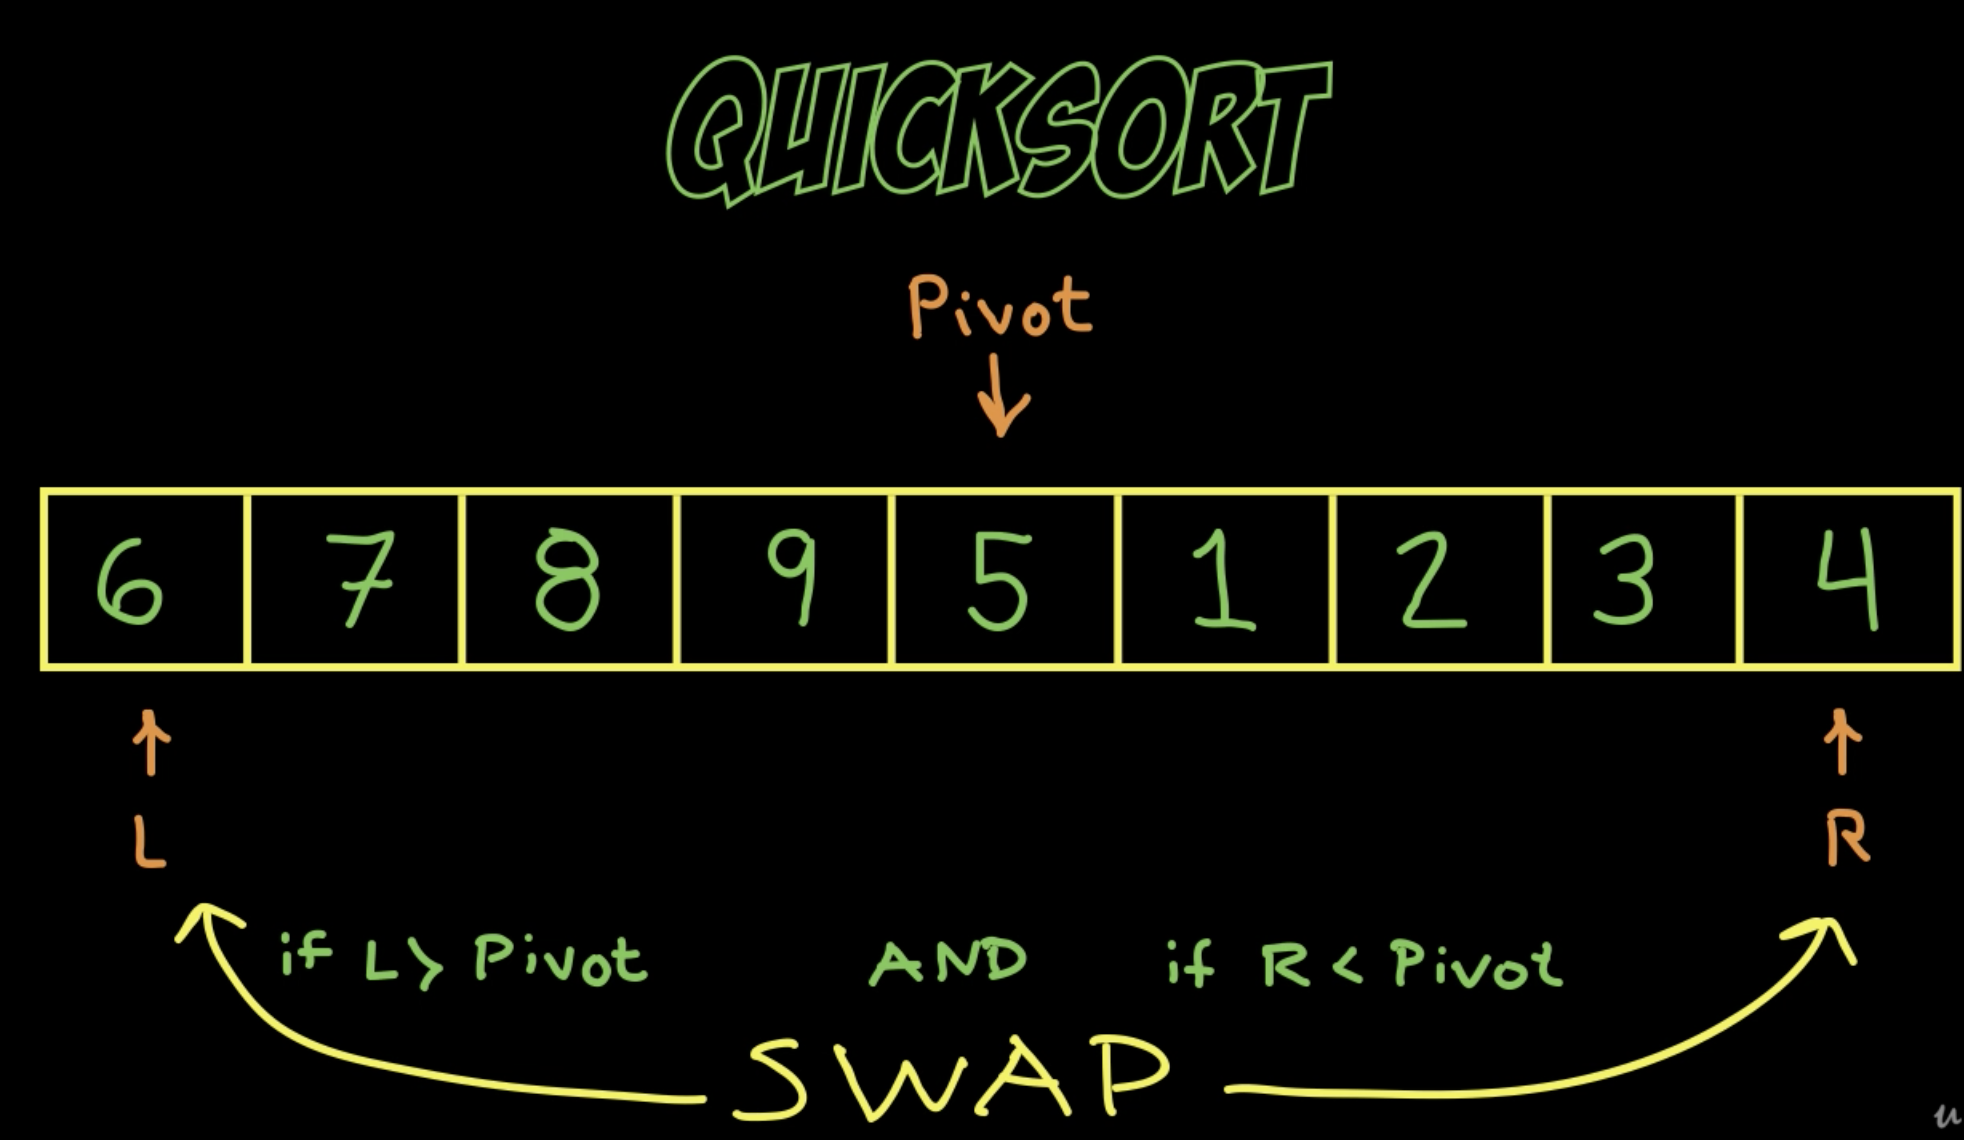 QUICKSORT
Pivot
6 7 8 9 5 1 2 3 4
L R
if L > Pivot AND if R < Pivot
SWAP
u